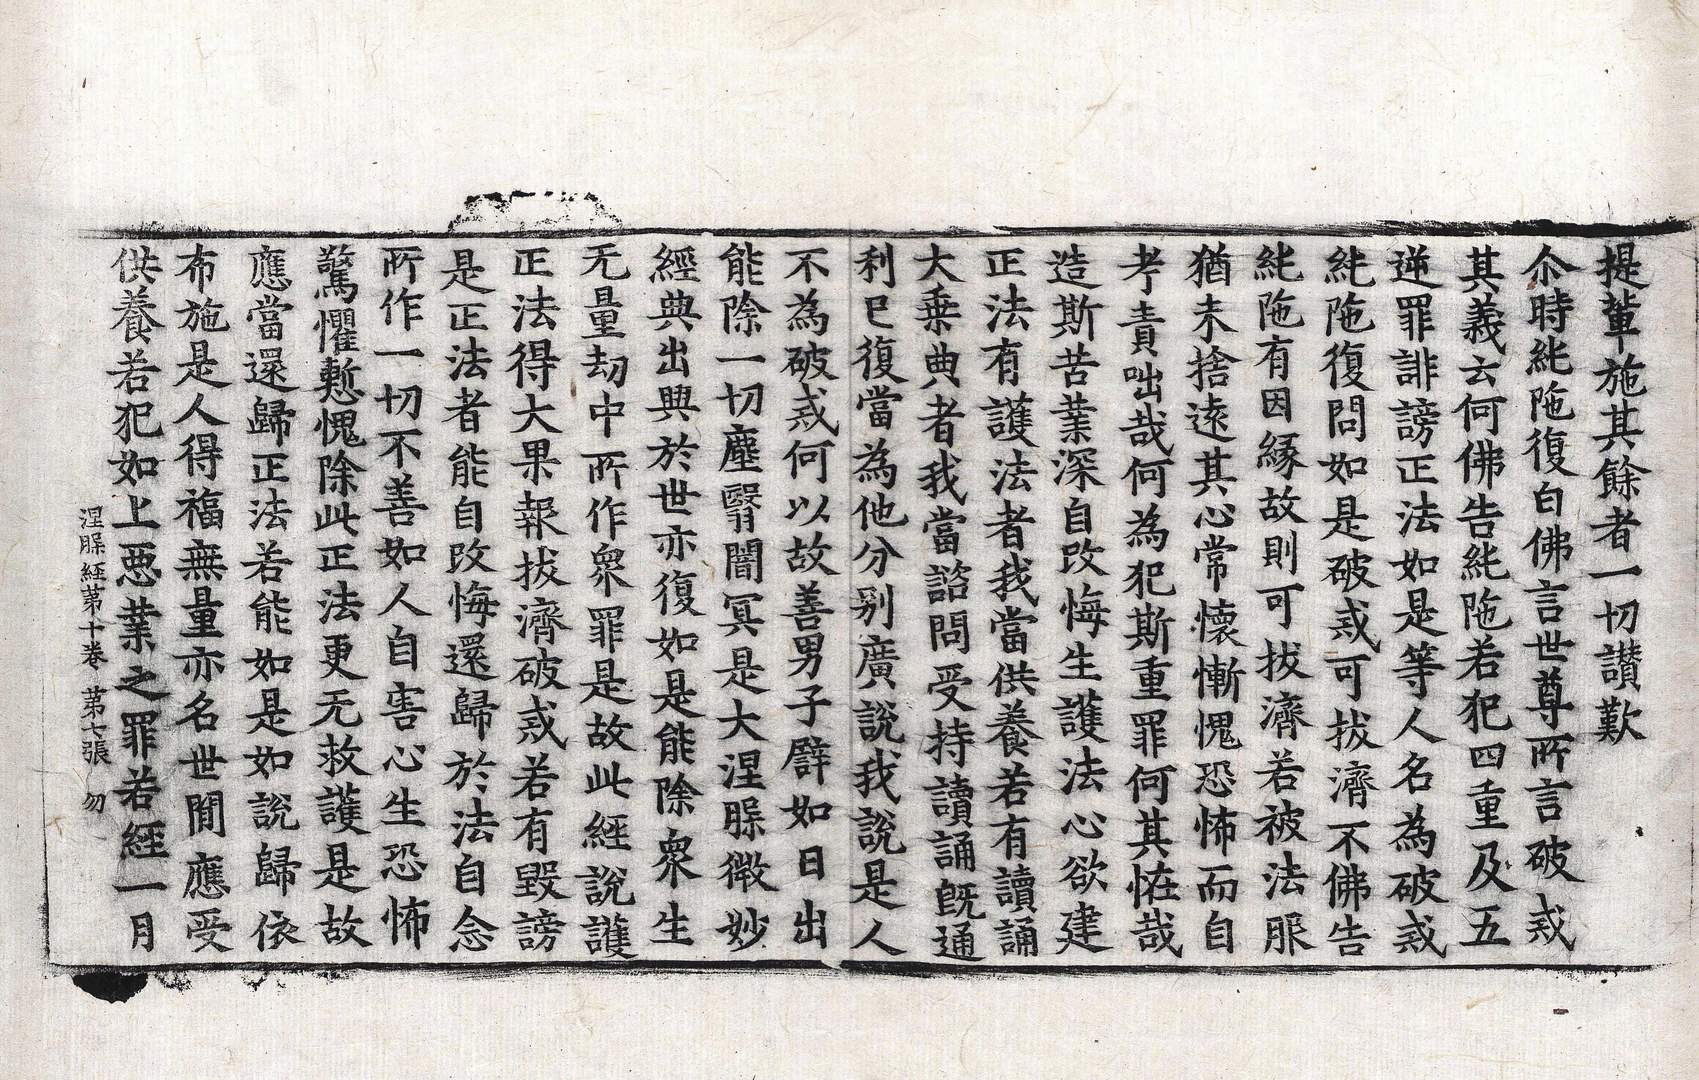 提輩施其餘者一切讃歎
尒時純陁復白佛言世尊所言破戒
其義云何佛告純陁若犯四重及五
逆罪誹謗正法如是等人名為破戒
純陁復問如是破戒可拔濟不佛告
純陁有因縁故則可拔濟若被法服
猶未捨遠其心常懷慚愧恐怖而自
考責咄哉何為犯斯重罪何其恠哉
造斯苦業深自改悔生護法心欲建
正法有護法者我當供養若有讀誦
大乗典者我當諮問受持讀誦旣通
利已復當為他分别廣說我說是人
不為破戒何以故善男子譬如日出
能除一切塵翳闇冥是大涅槃微妙
經典出興於世亦復如是能除衆生
无量劫中所作衆罪是故此經說護
正法得大果報拔濟破戒若有毀謗
是正法者能自改悔還歸於法自念
所作一切不善如人自害心生恐怖
驚懼慙愧除此正法更无救護是故
應當還歸正法若能如是如說歸依
布施是人得福無量亦名世間應受
供養若犯如上惡業之罪若經一月
涅槃經苐十卷 苐七張 勿